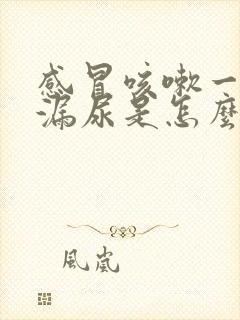 感冒咳嗽一
漏尿是怎麼
風嵐